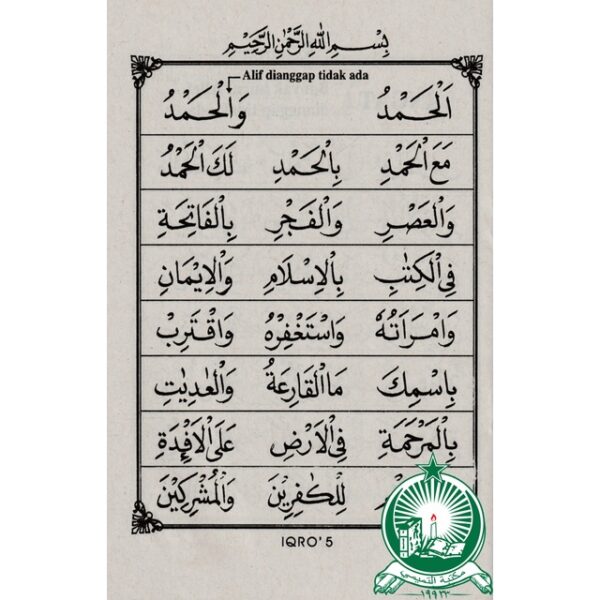 بِسْمِ اللهِ الرَّحْمٰنِ الرَّحِيْمِ
Alif dianggap tidak ada
اَلْحَمْدُ وَالْحَمْدُ
مَعَ الْحَمْدِ بِالْحَمْدِ لَكَ الْحَمْدُ
وَالْعَصْرِ وَالْفَجْرِ بِالْفَاتِحَةِ
فِى الْكِتٰبِ بِالْاِسْلَامِ وَالْاِيْمَانِ
وَامْرَاَتُهٗ وَاسْتَغْفِرْهُ وَاقْتَرِبْ
بِاسْمِكَ مَا الْقَارِعَةُ وَالْعٰدِيٰتِ
بِالْمَرْحَمَةِ فِى الْاَرْضِ عَلَى الْاَفْـِٕدَةِ
لِلْكٰفِرِيْنَ وَالْمُشْرِكِيْنَ
IQRO' 5